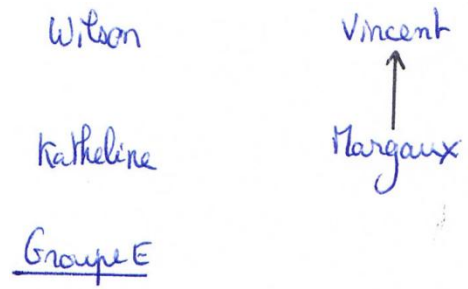 Wilson Vincent
Katheline Margaux
Groupe E